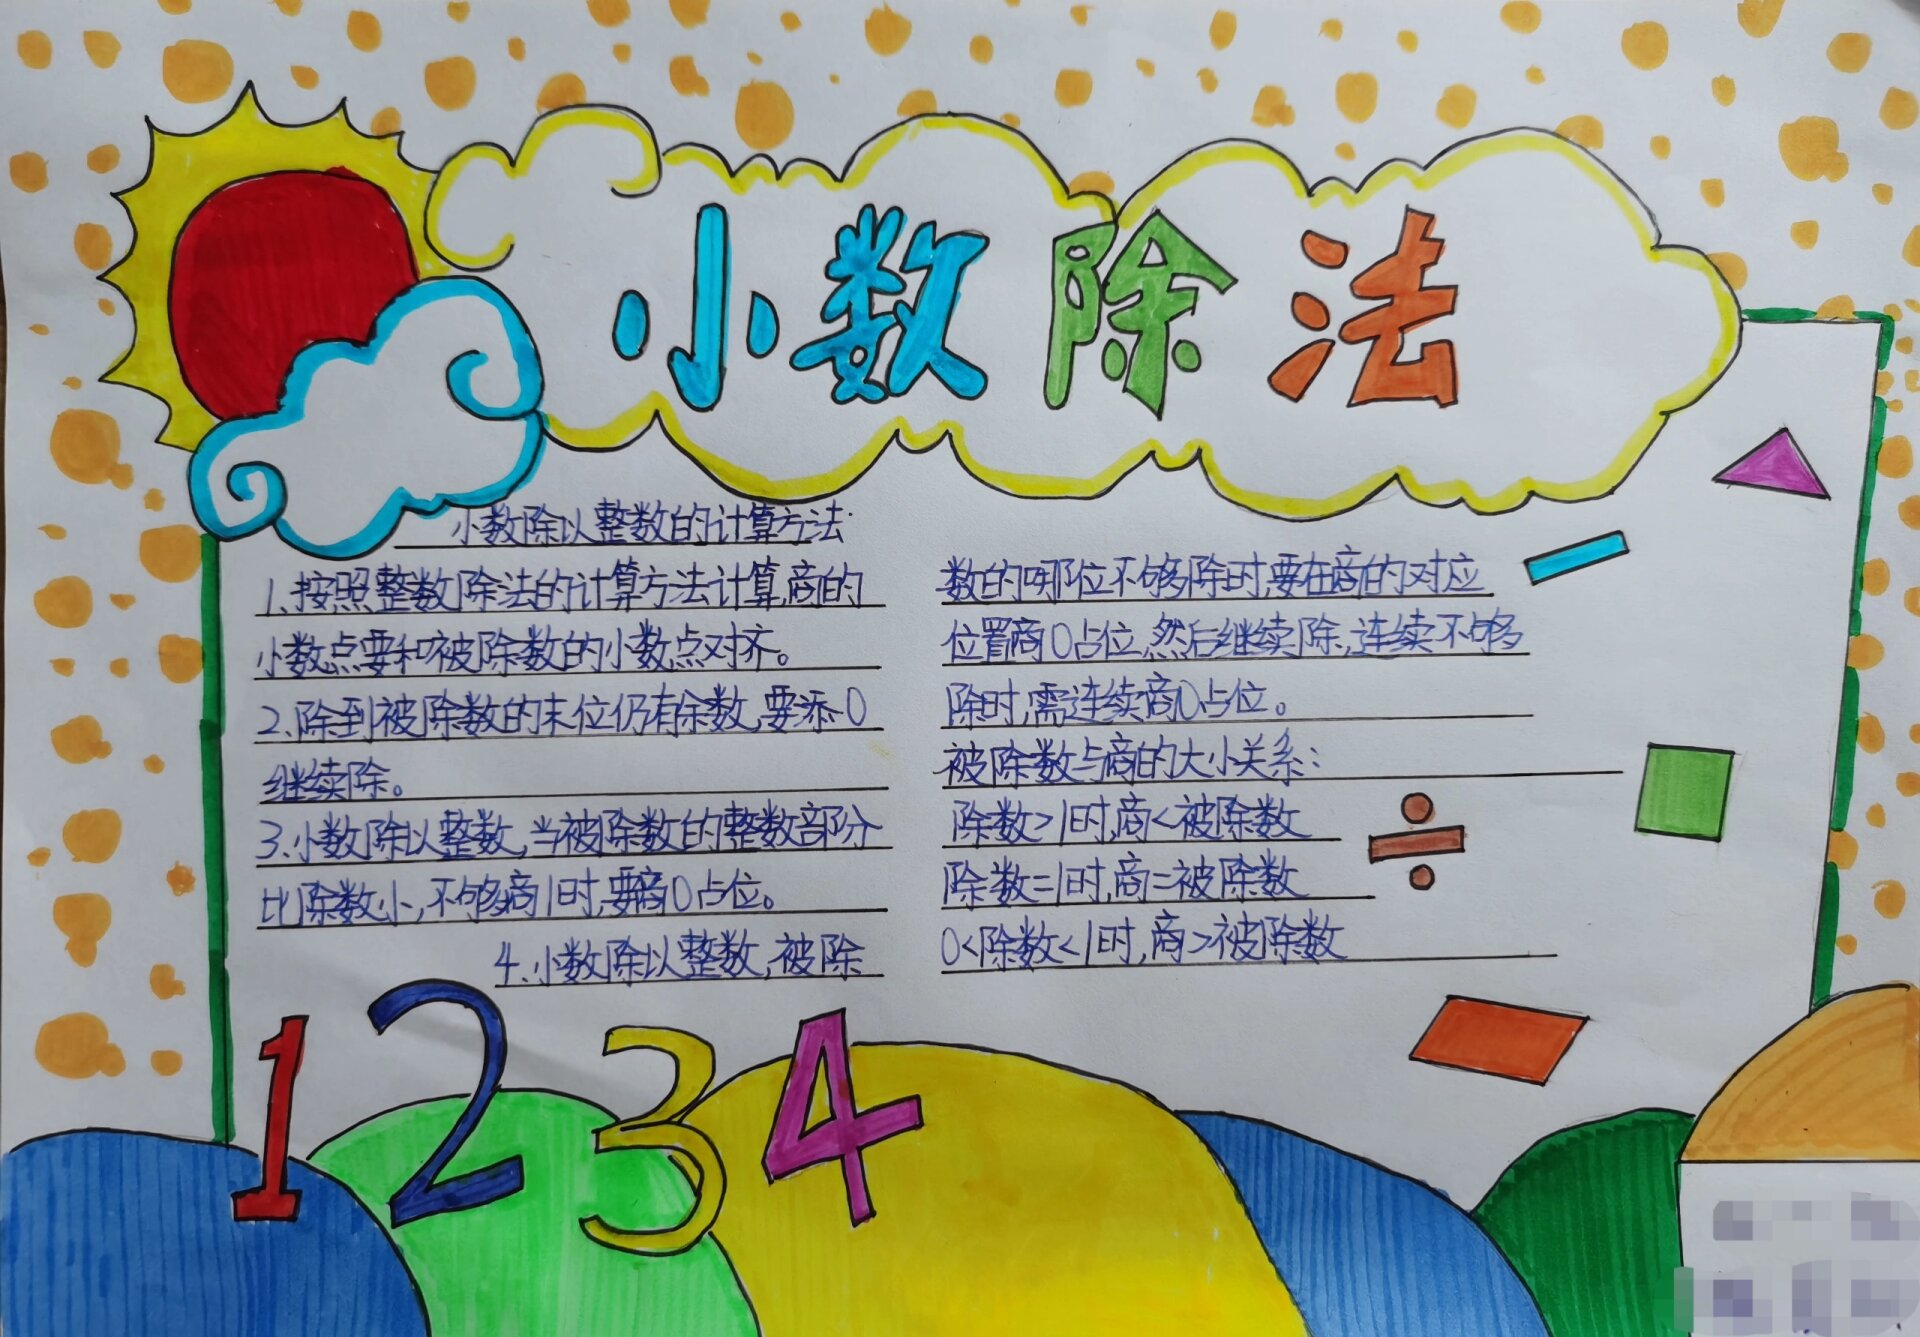 小数除法
小数除以整数的计算方法:
1.按照整数除法的计算方法计算,商的
小数点要和被除数的小数点对齐。
2.除到被除数的末位仍有余数,要添0
继续除。
3.小数除以整数,当被除数的整数部分
比除数小,不够商1时,要商0占位。
4.小数除以整数,被除
数的哪位不够除时,要在商的对应
位置商0占位,然后继续除,连续不够
除时,需连续商0占位。
被除数与商的大小关系:
除数>1时,商<被除数
÷
除数=1时,商=被除数
0<除数<1时,商>被除数
1 2 3 4